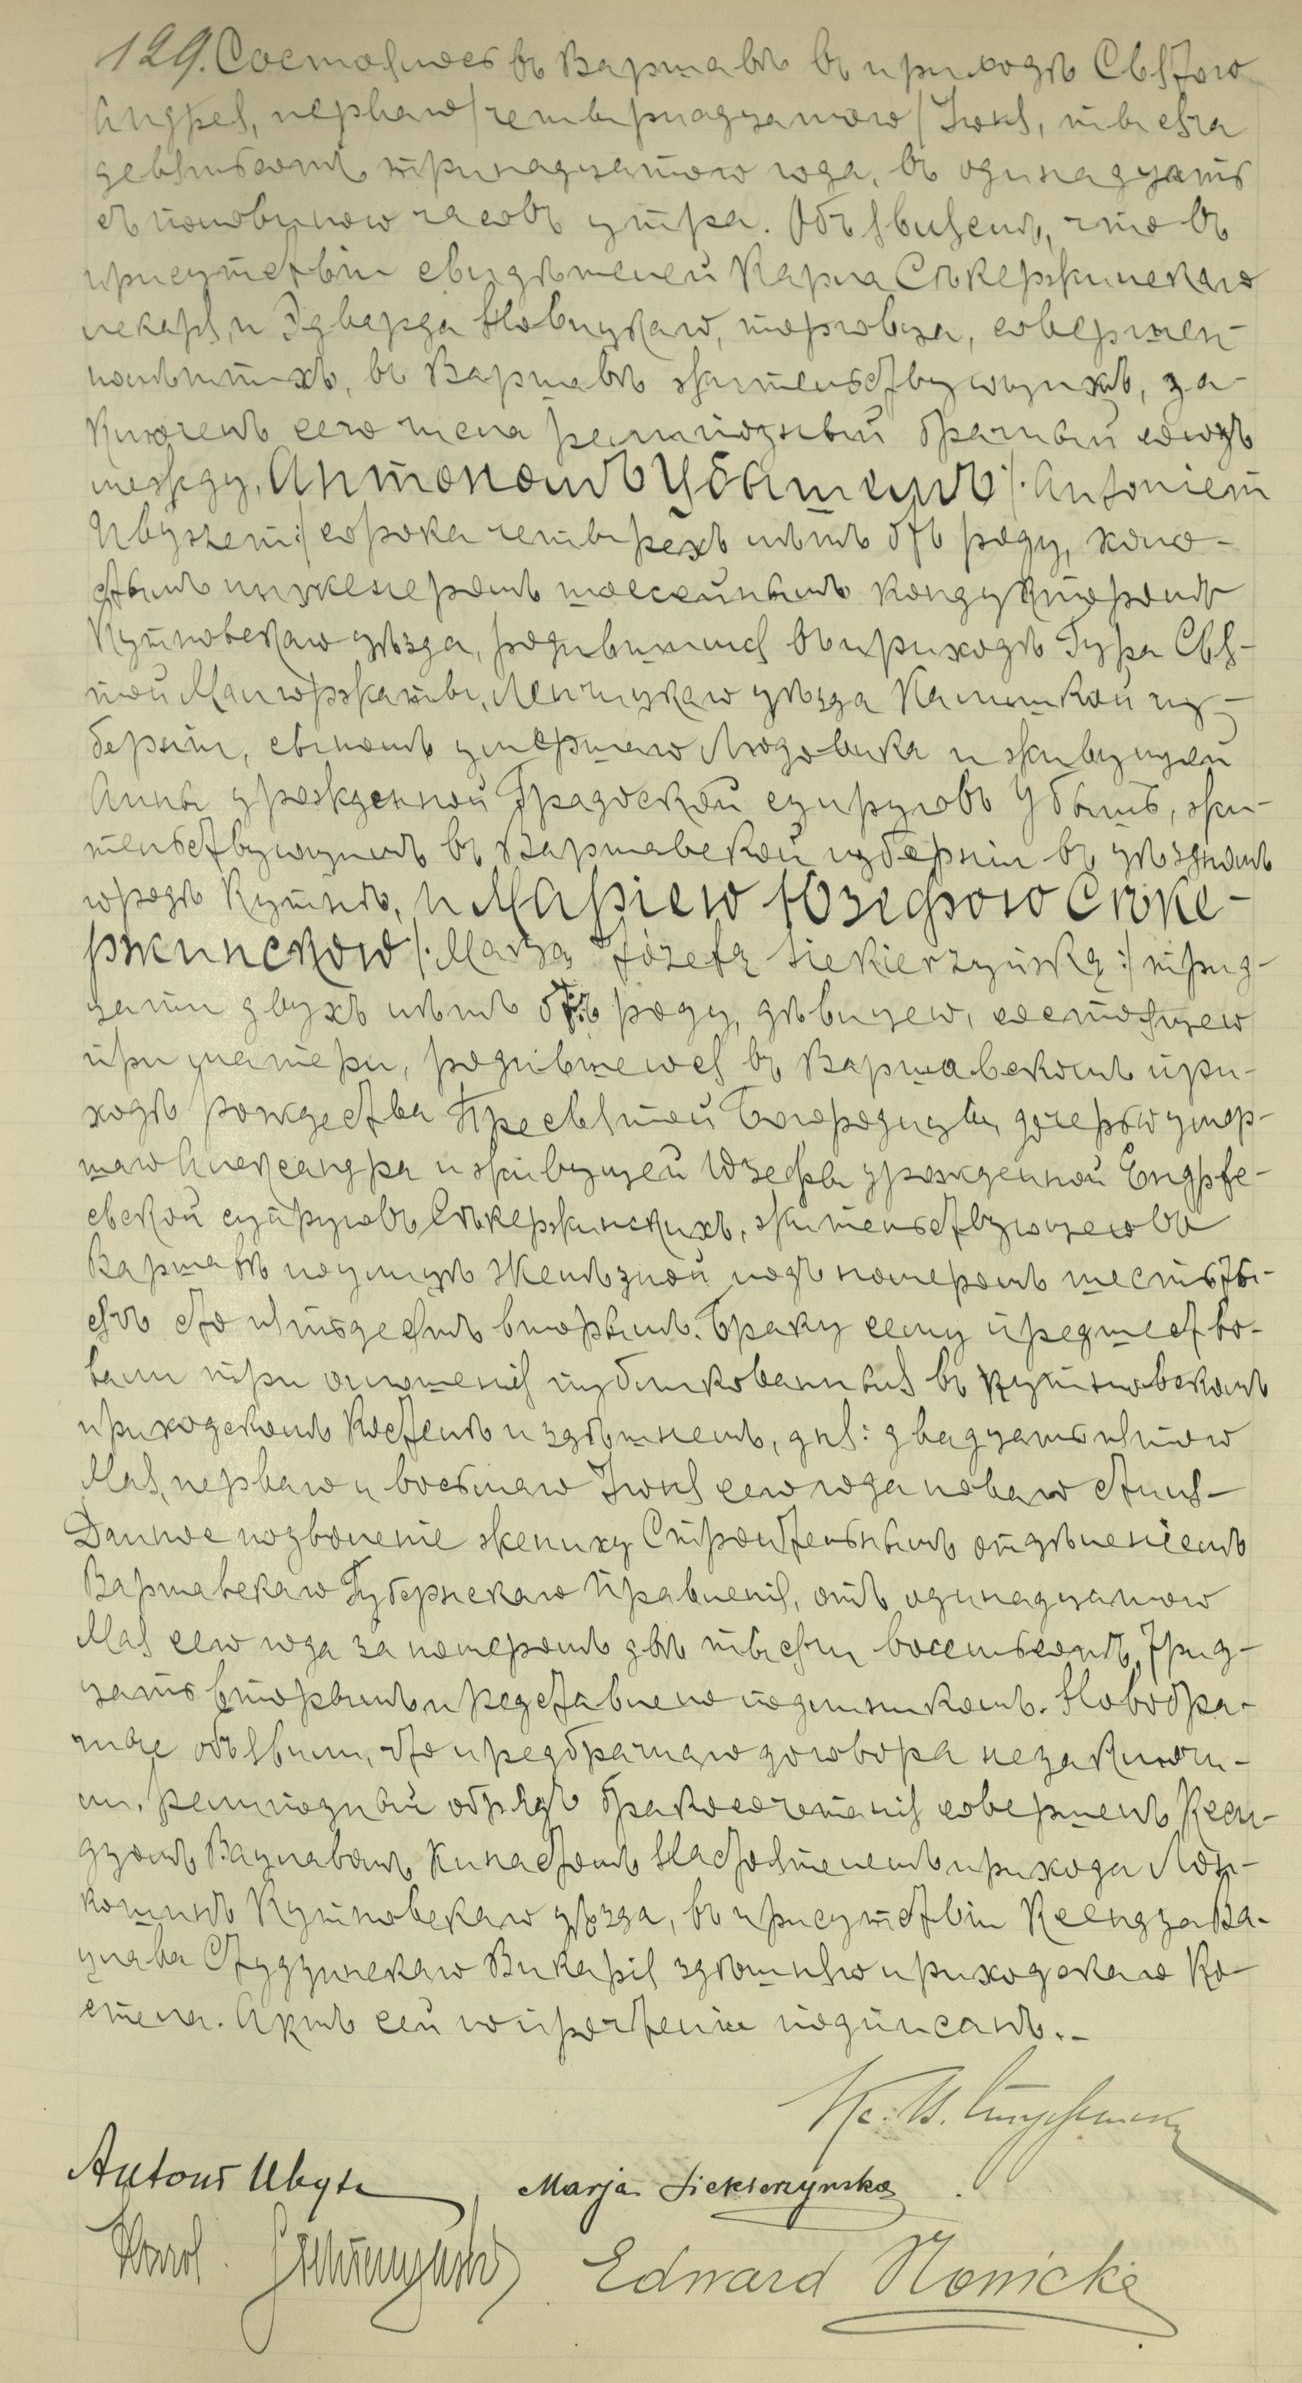 129. Состоялось въ Варшавѣ въ приходѣ Святого
Андрея, перваго /четырнадцатого/ Іюня, тысяча
девятьсотъ тринадцатого года, въ одинадцать
съ половиною часовъ утра. Объявляемъ, что въ
присутствіи свидѣтелей Карла Сѣкержинскаго
пекаря, и Эдварда Новицкаго, торговца, совершен-
нолѣтнихъ, въ Варшавѣ жительствующихъ, за-
ключенъ сего числа религіозный брачный союзъ
между, Антономъ Убышемъ /: Antoniem
Ubyszem :/ сорока четырехъ лѣтъ отъ роду, холо-
стымъ инженеромъ шоссейнымъ кондукторомъ
Кутновскаго уѣзда, родившимся въ приходѣ Гура Свя-
той Малгоржаты, Ленчицкаго уѣзда Калишской гу-
берніи, сыномъ умершаго Людовика и живущей
Анны урожденной Градовской супруговъ Убышъ, жи-
тельствующимъ въ Варшавской губерніи въ уѣздномъ
городѣ Кутнѣ, и Маріею Юзефою Сѣке-
ржинскою /: Maryą Józefą Siekierzyńską :/ трид-
цати двухъ лѣтъ отъ роду, дѣвицею, состоящею
при матери, родившеюся въ Варшавскомъ при-
ходѣ рождества Пресвятой Богородицы, дочерью умер-
шаго Александра и живущей Юзефы урожденной Ендрѣе-
вской супруговъ Сѣкержинскихъ, жительствующею въ
Варшавѣ по улицѣ Желѣзной подъ номеромъ шестьты-
сячъ сто пятьдесятъ вторымъ. Браку сему предшество-
вали три оглашенія публикованныя въ Кутновскомъ
приходскомъ Костелѣ и здѣшнемъ, дня: двадцать пятого
Мая, перваго и восьмаго Іюня сего года новаго стиля-
Данное позволеніе жениху Строительнымъ отдѣленіемъ
Варшавскаго Губернскаго Правленія, отъ одинадцатого
Мая сего года за номеромъ двѣ тысячи восемьсотъ трид-
цать вторымъ представлено подлинникомъ. Новобра-
чные объявили, что предбрачнаго договора не заключи-
ли. религіозный обрядъ бракосочетанія совершенъ Ксен-
дзомъ Вацлавомъ Кинастомъ Настоятелемъ прихода Лон-
кошинъ Кутновскаго уѣзда, въ присутствіи Ксендза Ва-
цлава Студзинскаго Викарія здѣшняго приходскаго Ко-
стела. Актъ сей по прочтеніи подписанъ.-
Кс. В.
Antoni Ubysz Marja Siekierzyńska
Karol Siekierzyński Edward Nowicki